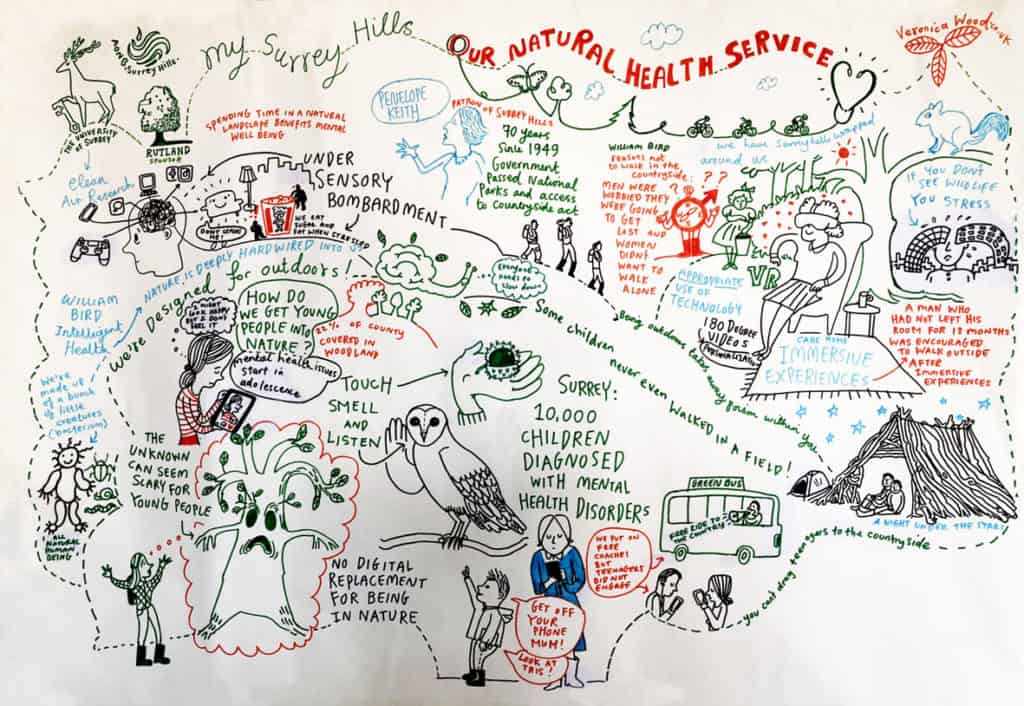 My Surrey Hills
OUR NATURAL HEALTH SERVICE
Surrey Hills
THE UNIVERSITY
OF SURREY
RUTLAND
SPONSOR
SPENDING TIME IN A NATURAL
LANDSCAPE BENEFITS MENTAL
WELL BEING
PENELOPE
KEITH
PATRON OF SURREY HILLS
70 years
Since 1949
Government
Passed National
Parks and access
to Countryside act
WILLIAM BIRD
Reasons not
to walk in the
countryside:
MEN WERE
WORRIED THEY
WERE GOING
TO GET
LOST AND
WOMEN
DIDNT
WANT TO
WALK
ALONE
? ? ?
we have Surrey hills wrapped
around us
IF YOU DON'T
SEE WILDLIFE
YOU STRESS
Clean
Air Research
UNDER
SENSORY
BOMBARDMENT
WE EAT
SUGAR AND
FAT WHEN STRESSED
NATURE IS DEEPLY HARDWIRED INTO US
we're Designed for outdoors!
WILLIAM
BIRD
Intelligent
Health
Everyone
needs to
slow down
VR
APPROPRIATE
USE OF
TECHNOLOGY
180 DEGREE
VIDEOS
CARE HOME
IMMERSIVE
EXPERIENCES
A MAN WHO
HAD NOT LEFT HIS
ROOM FOR 18 MONTHS
WAS ENCOURAGED
TO WALK OUTSIDE
AFTER
IMMERTIVE
EXPERIENCES
I MIGHT
LOOK HAPPY
BUT I DONT
FEEL IT
HOW DO
WE GET YOUNG
PEOPLE INTO
NATURE?
22% OF COUNTY
COVERED IN
WOODLAND
mental health issues
start in
adolescence
We're
made up
of a bunch
of little
creatures
(bacterium)
ALL
NATURAL
HUMAN
BEING
TOUCH
SMELL
AND
LISTEN
Some children never even WALKED IN A FIELD!
Being outdoors takes away from within you
SURREY:
10,000
CHILDREN
DIAGNOSED
WITH MENTAL
HEALTH DISORDERS
THE
UNKNOWN
CAN SEEM
SCARY FOR
YOUNG PEOPLE
GREEN BUS
FREE RIDE TO
THE COUNTRY
A NIGHT UNDER THE STARS
you cant drag teenagers to the countryside
WE PUT ON
FREE
COACHES
BUT
TEENAGERS
DID NOT
ENGAGE
NO DIGITAL
REPLACEMENT
FOR BEING
IN NATURE
GET OFF
YOUR
PHONE
MUM!
LOOK AT
THIS!